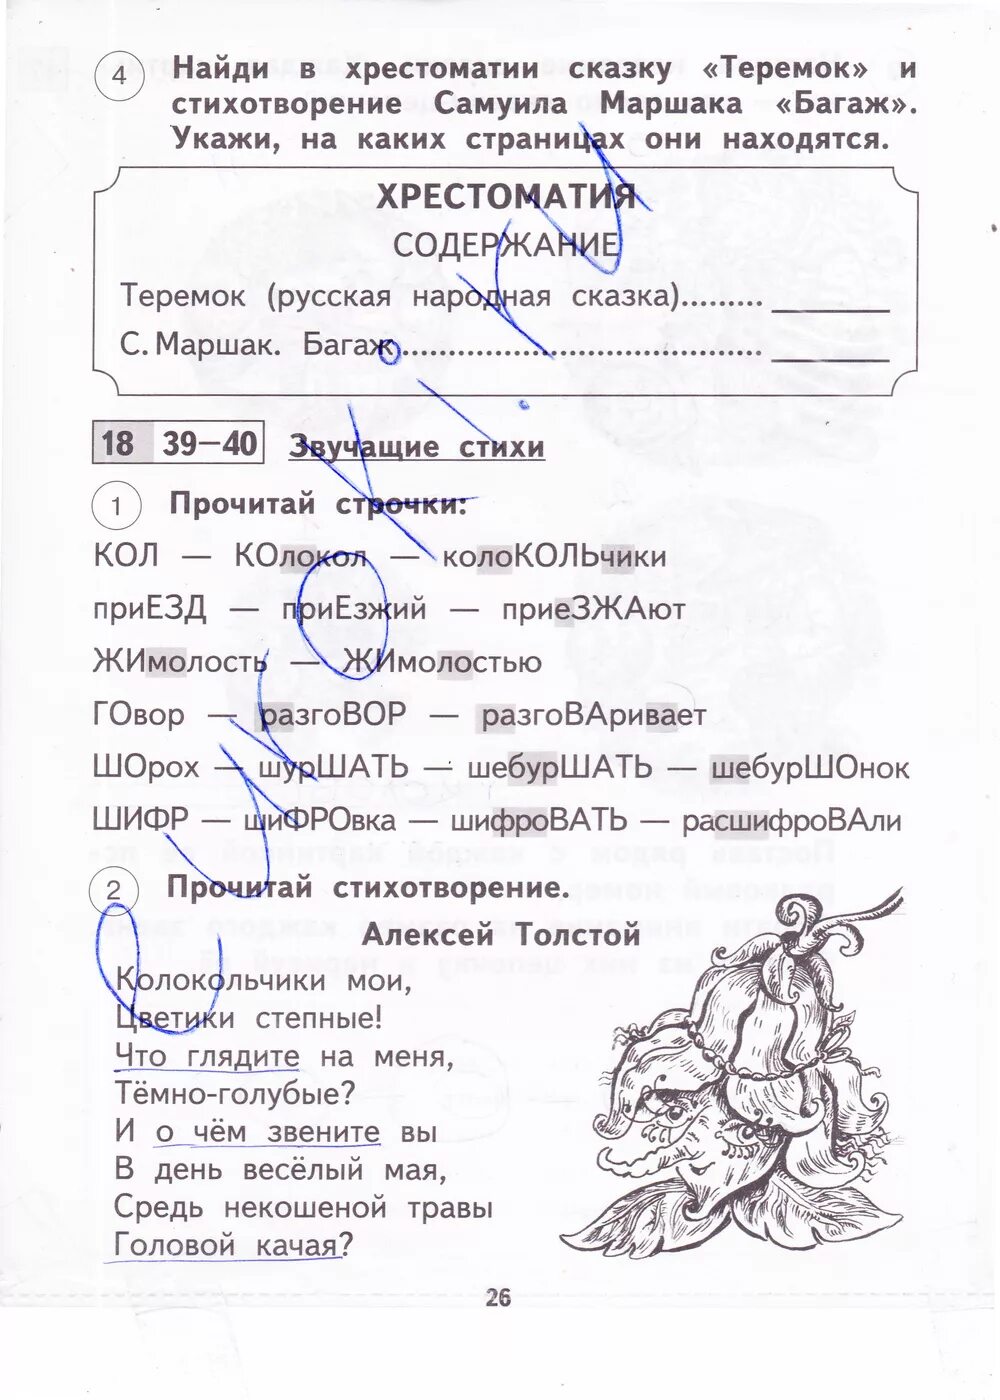 4 Найди в хрестоматии сказку «Теремок» и
стихотворение Самуила Маршака «Багаж».
Укажи, на каких страницах они находятся.
ХРЕСТОМАТИЯ
СОДЕРЖАНИЕ
Теремок (русская народная сказка)......... ______
С. Маршак. Багаж..................................... ______
18 39—40 Звучащие стихи
1 Прочитай строчки:
КОЛ — КОлокол — колоКОЛЬчики
приЕЗД — приЕзжий — приеЗЖАют
ЖИмолость — ЖИмолостью
ГОвор — разгоВОР — разгоВАривает
ШОрох — шурШАТЬ — шебурШАТЬ — шебурШОнок
ШИФР — шиФРОвка — шифроВАТЬ — расшифроВАли
2 Прочитай стихотворение.
Алексей Толстой
Колокольчики мои,
Цветики степные!
Что глядите на меня,
Тёмно-голубые?
И о чём звените вы
В день весёлый мая,
Средь некошеной травы
Головой качая?
26